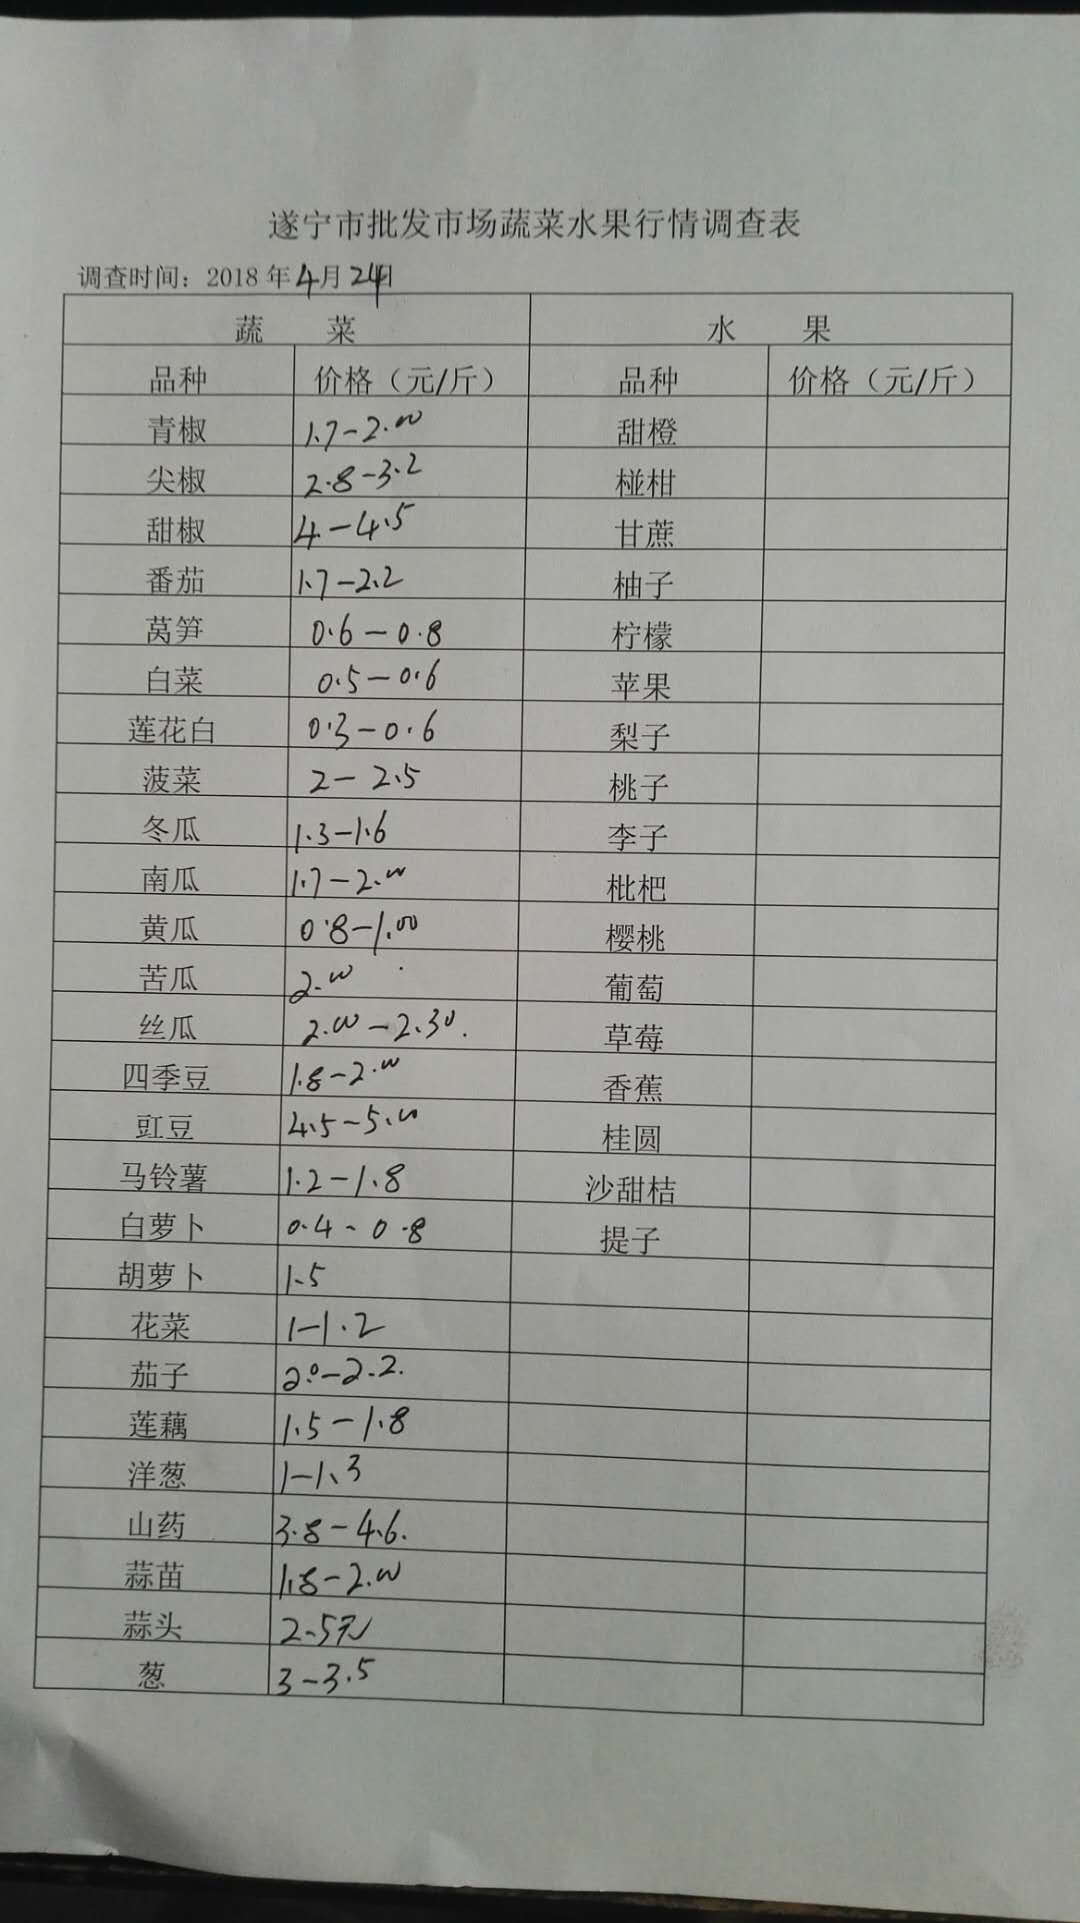 遂宁市批发市场蔬菜水果行情调查表
调查时间：2018年4月24日
蔬 菜 水 果
品种 价格（元/斤） 品种 价格（元/斤）
青椒 1.7-2.00 甜橙
尖椒 2.8-3.2 椪柑
甜椒 4-4.5 甘蔗
番茄 1.7-2.2 柚子
莴笋 0.6-0.8 柠檬
白菜 0.5-0.6 苹果
莲花白 0.3-0.6 梨子
菠菜 2-2.5 桃子
冬瓜 1.3-1.6 李子
南瓜 1.7-2.00 枇杷
黄瓜 0.8-1.00 樱桃
苦瓜 2.00 葡萄
丝瓜 2.00-2.30. 草莓
四季豆 1.8-2.00 香蕉
豇豆 4.5-5.00 桂圆
马铃薯 1.2-1.8 沙甜桔
白萝卜 0.4-0.8 提子
胡萝卜 1.5
花菜 1-1.2
茄子 2.0-2.2.
莲藕 1.5-1.8
洋葱 1-1.3
山药 3.8-4.6.
蒜苗 1.8-2.00
蒜头 2.5元
葱 3-3.5